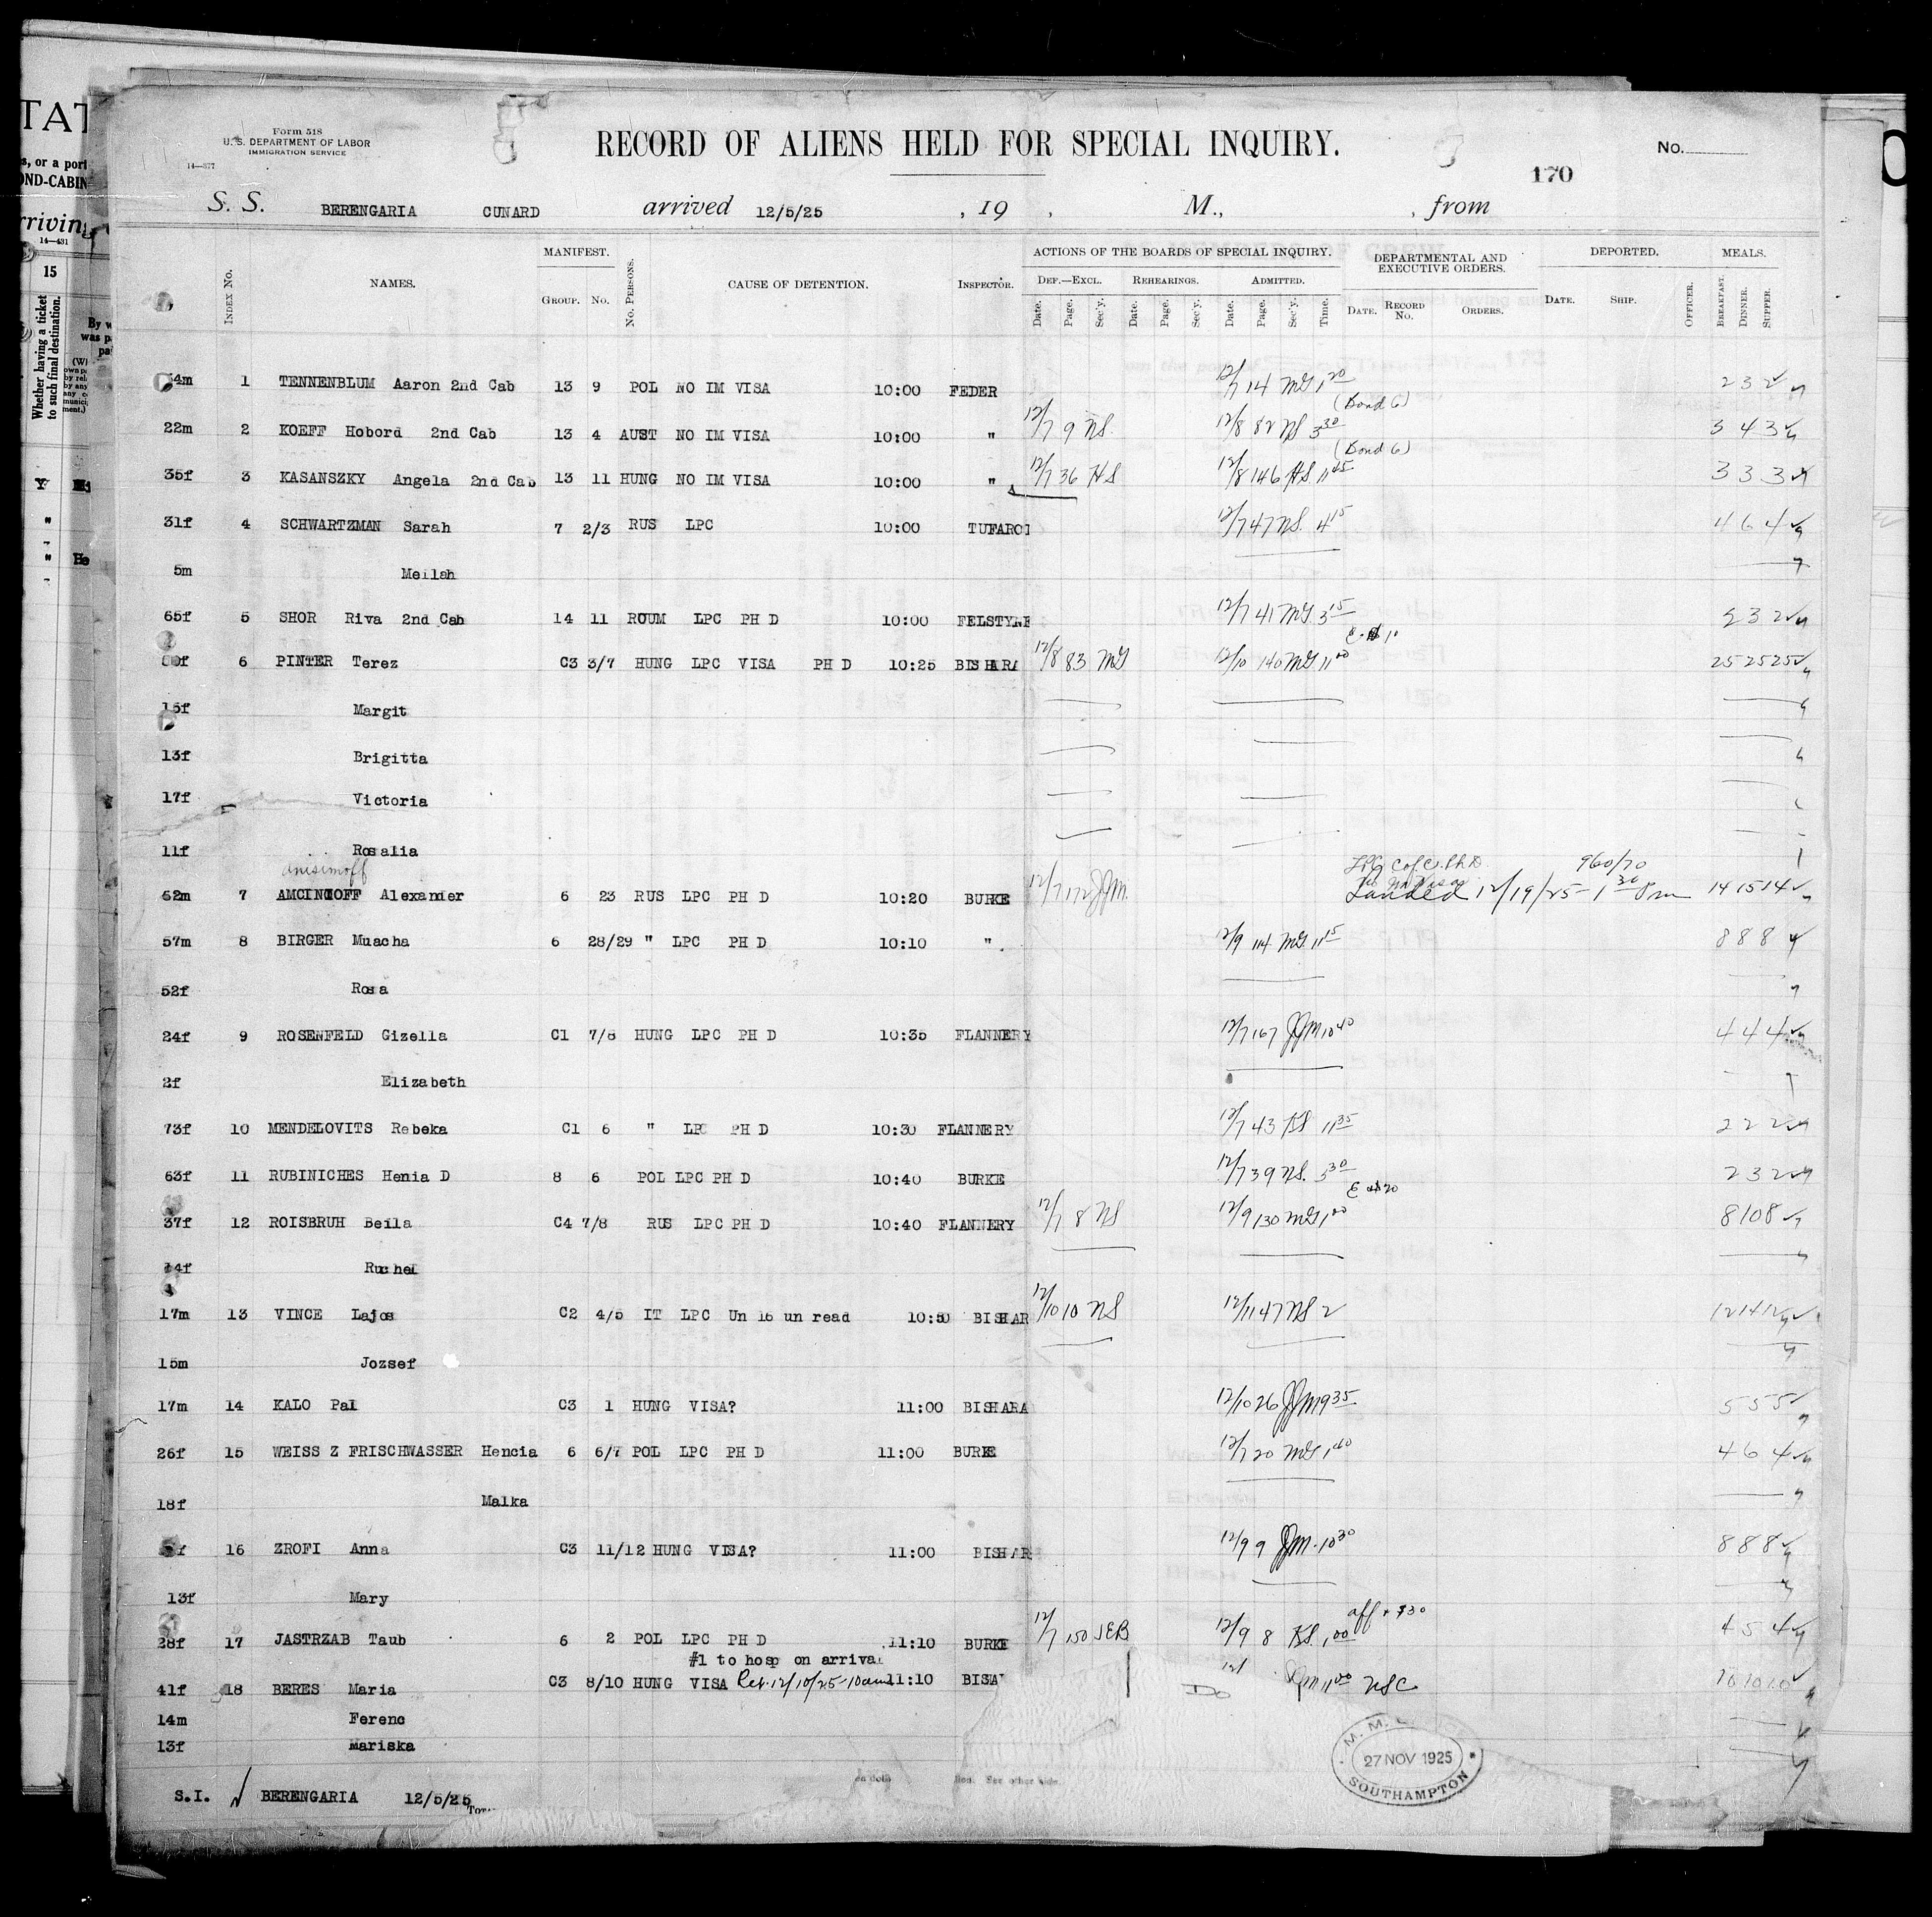 TAT
s, or a port
OND-CABIN
rriving
14—431
15
Whether having a ticket
to such final destination.
By w
was p
Form 518
U. S. DEPARTMENT OF LABOR
IMMIGRATION SERVICE
14—577
RECORD OF ALIENS HELD FOR SPECIAL INQUIRY.
No.
170
S. S. BERENGARIA CUNARD arrived 12/5/25 , 19 , M., , from
INDEX No. NAMES. MANIFEST. GROUP. No. No. PERSONS. CAUSE OF DETENTION. INSPECTOR. ACTIONS OF THE BOARDS OF SPECIAL INQUIRY. DEPARTMENTAL AND EXECUTIVE ORDERS. DEPORTED. MEALS.
DEF.—EXCL. REHEARINGS. ADMITTED.
Date. Page. Sec'y. Date. Page. Sec'y. Date. Page. Sec'y. Time. DATE. RECORD No. ORDERS. DATE. SHIP. OFFICER. BREAKFAST. DINNER. SUPPER.
4m 1 TENNENBLUM Aaron 2nd Cab 13 9 POL NO IM VISA 10:00 FEDER 12/7 14 MG 1 20 2 3 2
(Bond G)
22m 2 KOEFF Hobord 2nd Cab 13 4 AUST NO IM VISA 10:00 " 12/7 9 NS. 12/8 82 NS 3 30 3 4 3
(Bond G)
35f 3 KASANSZKY Angela 2nd Cab 13 11 HUNG NO IM VISA 10:00 " 12/7 36 HS 12/8 146 HS 11 45 3 3 3
31f 4 SCHWARTZMAN Sarah 7 2/3 RUS LPC 10:00 TUFARO 12/7 47 NS. 4 15 4 6 4
5m Meilah
65f 5 SHOR Riva 2nd Cab 14 11 ROUM LPC PH D 10:00 FELSTYNE 12/7 41 MG 3 15 2 3 2
0f 6 PINTER Terez C3 3/7 HUNG LPC VISA PH D 10:25 BISHARA 12/8 83 MG 12/10 140 MG 11 00 25 25 25
15f Margit
13f Brigitta
17f Victoria
11f Rosalia
anisimoff
LPC Ph.D. 960/70
62m 7 Alexander 6 23 RUS LPC PH D 10:20 BURKE 12/7 172 JJM. Landed 12/19/25 - 1 30 Pm 14 15 14
57m 8 BIRGER Muscha 6 28/29 " LPC PH D 10:10 ". 12/9 114 MG 11 15 8 8 8
52f Rosa
24f 9 ROSENFELD Gizella C1 7/8 HUNG LPC PH D 10:35 FLANNERY 12/7 167 JJM 10 40 4 4 4
2f Elizabeth
73f 10 MENDELOVITS Rebeka C1 6 " LPC PH D 10:30 FLANNERY 12/7 43 KS 11 35 2 2 2
63f 11 RUBINICHES Henia D 8 6 POL LPC PH D 10:40 BURKE 12/7 39 NS. 3 30 2 3 2
37f 12 ROISBRUH Beila C4 7/8 RUS LPC PH D 10:40 FLANNERY 12/7 8 NS 12/9 130 MG 1 00 8 10 8
14f Ruchel
17m 13 VINCE Lajos C2 4/5 IT LPC Un 16 un read 10:50 BISHAR 12/10 10 NS 12/11 47 NS 2 12 14 12
15m Jozsef
17m 14 KALO Pal C3 1 HUNG VISA? 11:00 BISHARA 12/10 26 JJM 9 35 5 5 5
26f 15 WEISS Z FRISCHWASSER Hencia 6 6/7 POL LPC PH D 11:00 BURKE 12/7 20 MG 1 40 4 6 4
18f Malka
f 16 ZROFI Anna C3 11/12 HUNG VISA? 11:00 BISHAR 12/9 9 JJM. 10 30 8 8 8
13f Mary
aff + $30
28f 17 JASTRZAB Taub 6 2 POL LPC PH D 11:10 BURKE 12/7 150 JEB 12/9 8 KS. 1 00 4 5 4
#1 to hosp on arrival
41f 18 BERES Maria C3 8/10 HUNG VISA Ret. 12/10/25 - 10am 11:10 BISHA 11 00 NSC 10 10 10
14m Ferenc
13f Mariska
27 NOV 1925
SOUTHAMPTON
See other side.
S.I. BERENGARIA 12/5/25